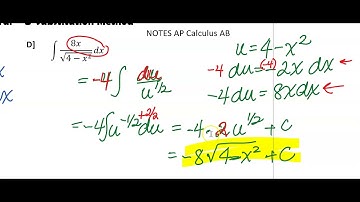 U-Substitution Method
NOTES AP Calculus AB
D] ∫ 8x/√(4-x²) dx
u = 4-x²
-4 du = (-4) -2x dx ←
= -4 ∫ du/u^(1/2)
-4 du = 8x dx ←
= -4 ∫ u^(-1/2) du +2/2 = -4 · 2 u^(1/2) + C
= -8√(4-x²) + C